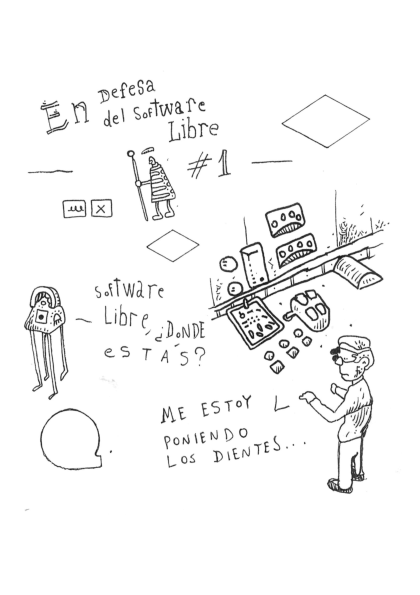 En Defesa
del Software
Libre
#1
x
Software
Libre, ¿DONDE
eSTÁS?
ME ESTOY
PONIENDO
LOS DIENTES...